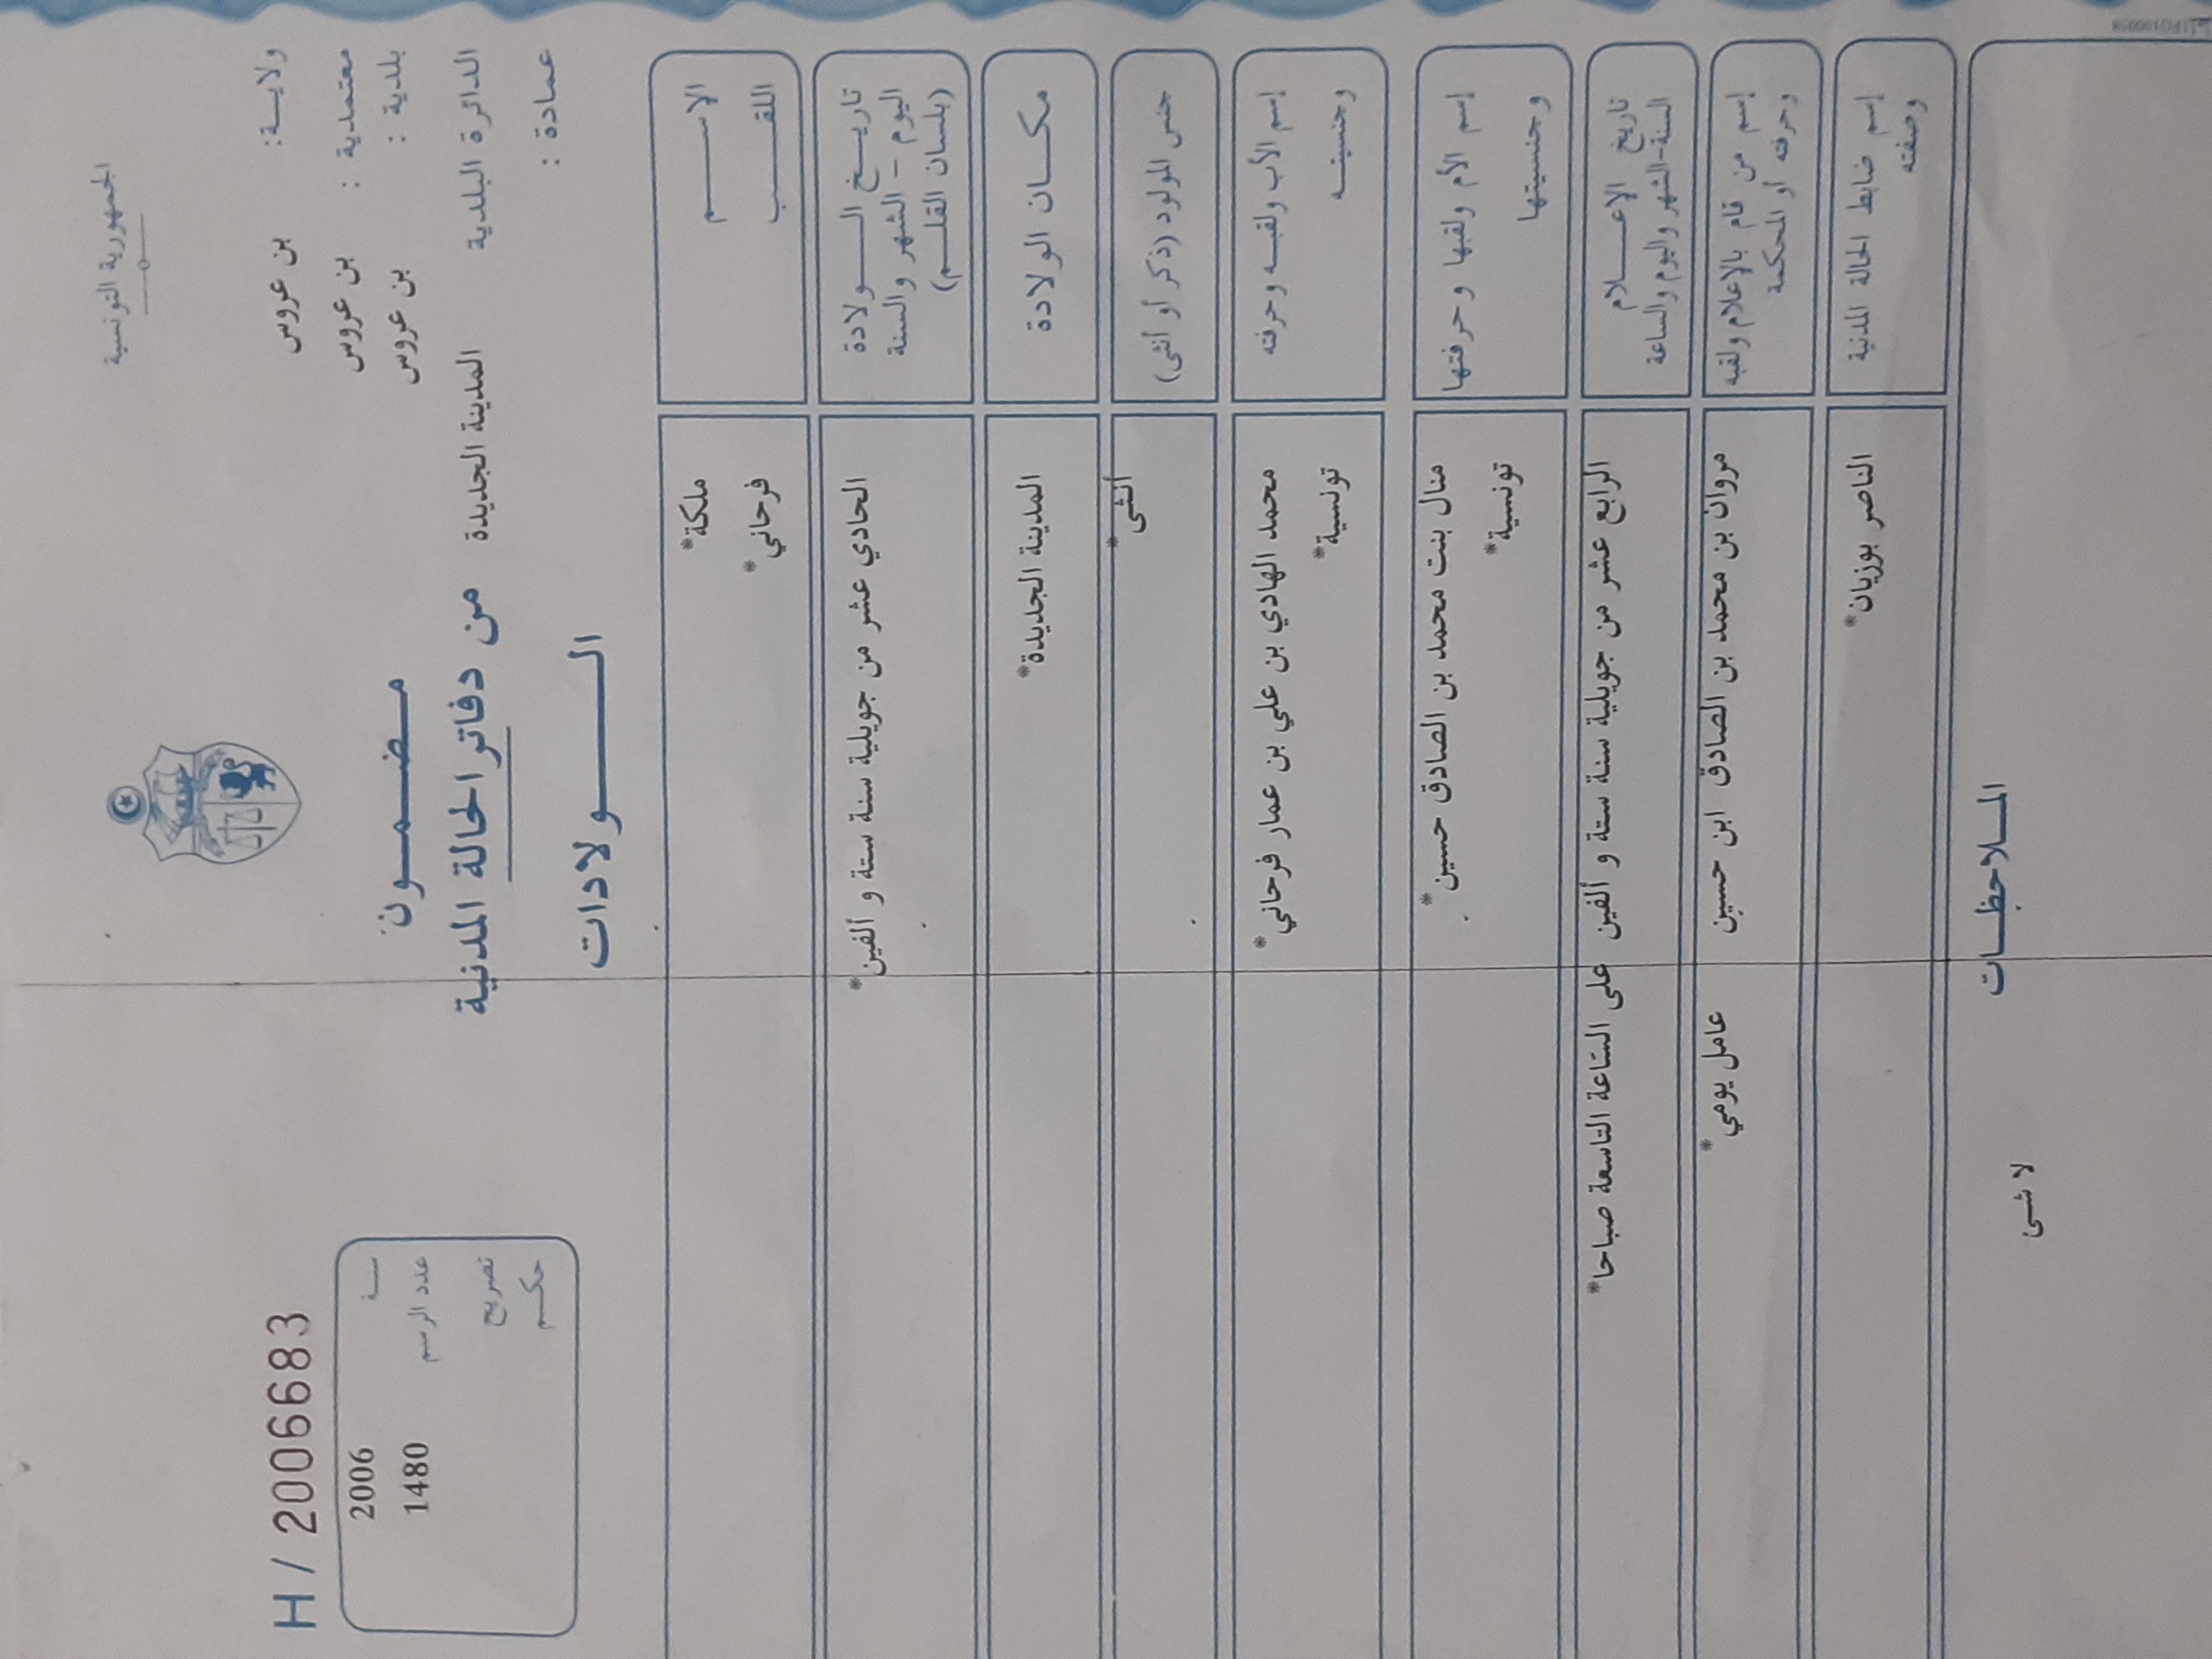 الجمهورية التونسية
ولاية: بن عروس
معتمدية : بن عروس
بلدية : بن عروس
الدائرة البلدية المدينة الجديدة
عمادة :
H / 2006683
سنة 2006
عدد الرسم 1480
تصريح
حكم
مضمون
من دفاتر الحالة المدنية
الولادات
الاسم ملكة*
اللقب فرحاني*
تاريخ الولادة
اليوم - الشهر والسنة
(بلسان القلم)
الحادي عشر من جويلية سنة ستة و ألفين*
مكان الولادة المدينة الجديدة*
جنس المولود (ذكر أو أنثى) أنثى*
إسم الأب ولقبه وحرفته محمد الهادي بن علي بن عمار فرحاني*
وجنسيته تونسية*
إسم الأم ولقبها وحرفتها منال بنت محمد بن الصادق حسين*
وجنسيتها تونسية*
تاريخ الإعلام
السنة-الشهر واليوم والساعة
الرابع عشر من جويلية سنة ستة و ألفين على الساعة التاسعة صباحا*
إسم من قام بالإعلام ولقبه
وحرفته أو المحكمة
مروان بن محمد بن الصادق ابن حسين عامل يومي*
إسم ضابط الحالة المدنية
وصفته
الناصر بوزيان*
الملاحظات
لا شئ